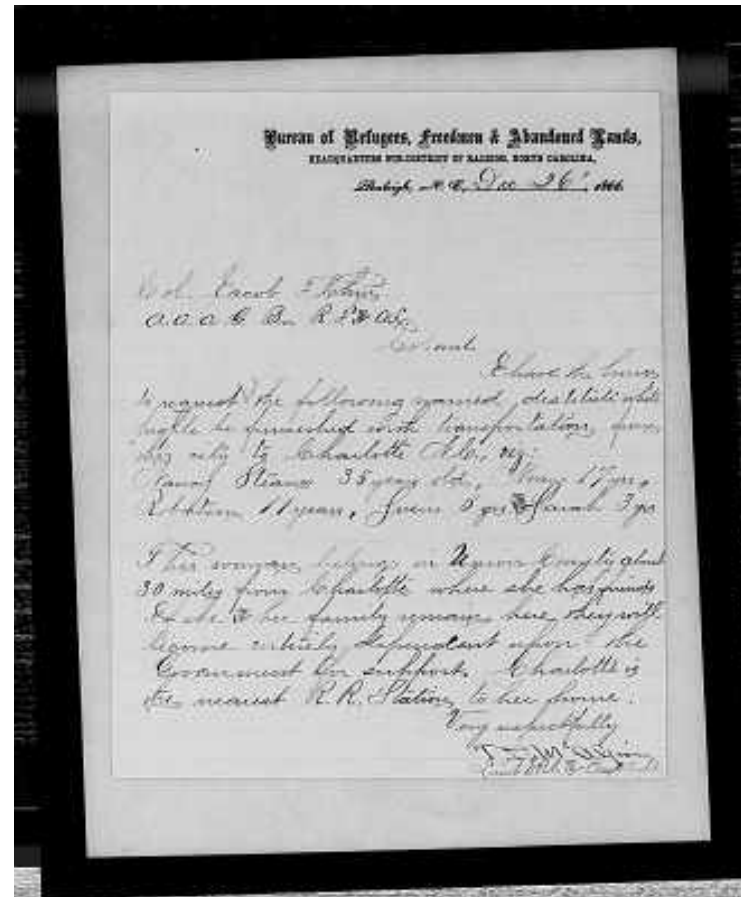 Bureau of Refugees, Freedmen & Abandoned Lands,
HEADQUARTERS SUB-DISTRICT OF RALEIGH, NORTH CAROLINA,
Raleigh, N. C., Dec 26' 1866
Col. Jacob F.
A.A.A.G. Bu R.F. & A.L.
Colonel
I have the honor
to request the following named destitute white
be furnished with transportation, from
this city to Charlotte N.C., viz:
35 years old, 17 yrs,
11 years, yrs & Sarah 3 yrs
This woman belongs in Union County about
30 miles from Charlotte where she has friends
If she & her family remain here, they will
become entirely dependent upon the
Government for support. Charlotte is
the nearest R.R. Station to her home.
Very respectfully